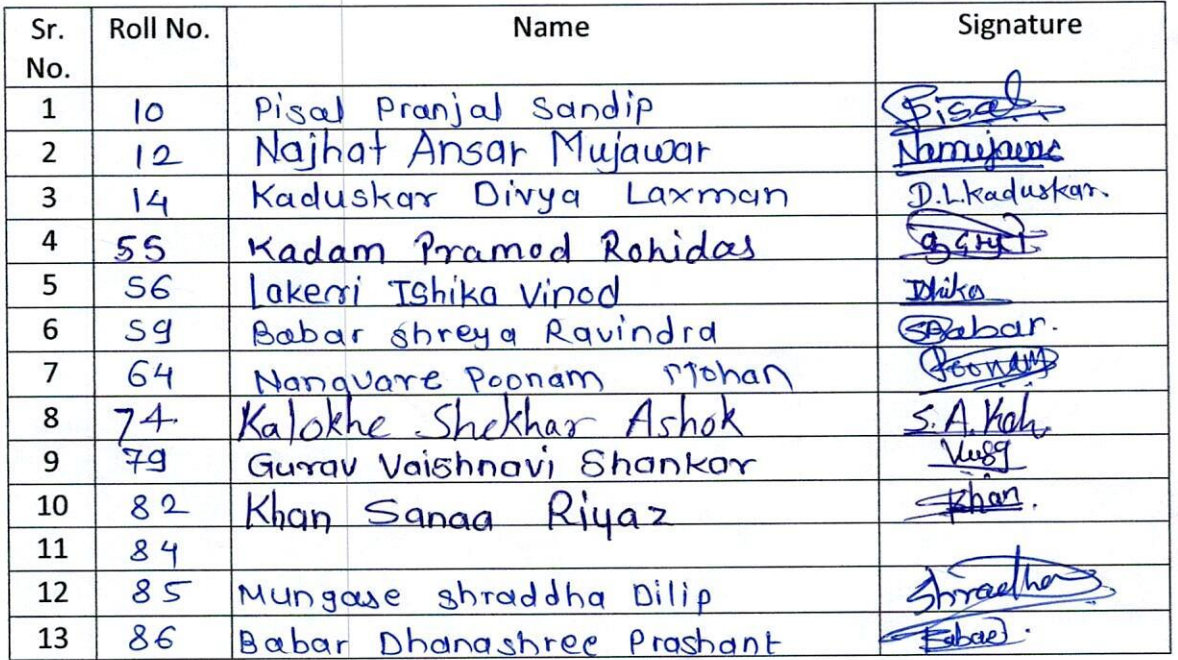 Sr. No. Roll No. Name Signature
1 10 Pisal Pranjal Sandip Pisal
2 12 Najhat Ansar Mujawar
3 14 Kaduskar Divya Laxman D.L.Kaduskar.
4 55 Kadam Pramod Rohidas
5 56 Lakeri Ishika Vinod Ishika
6 59 Babar Shreya Ravindra SBabar.
7 64 Nanavare Poonam Mohan Poonam
8 74 Kalokhe Shekhar Ashok S.A.Kah.
9 79 Gurav Vaishnavi Shankar
10 82 Khan Sanaa Riyaz Khan.
11 84
12 85 Mungase Shraddha Dilip Shraddha
13 86 Babar Dhanashree Prashant